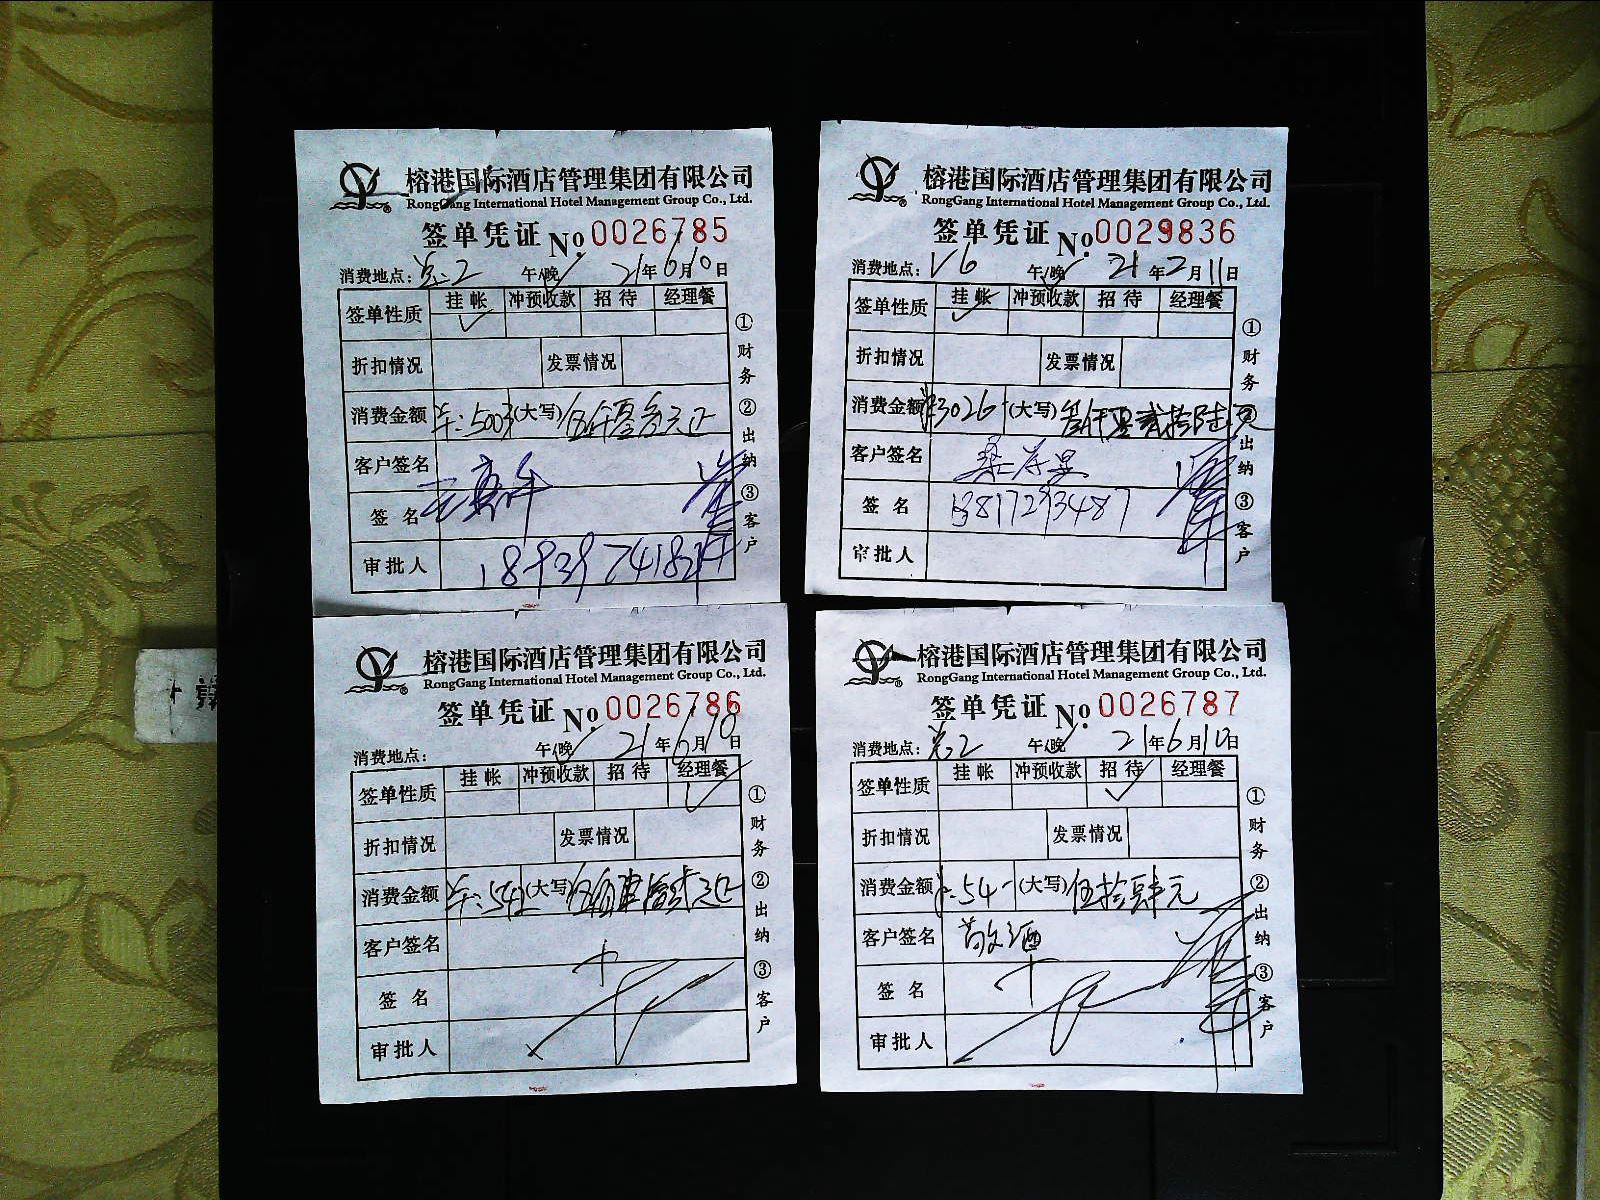 榕港国际酒店管理集团有限公司
RongGang International Hotel Management Group Co., Ltd.
签单凭证 No. 0026785
消费地点: 总:2 午/晚 21年6月10日
签单性质 挂帐 冲预收款 招待 经理餐
折扣情况 发票情况
消费金额 (大写)
客户签名
签名
审批人
①财务 ②出纳 ③客户
榕港国际酒店管理集团有限公司
RongGang International Hotel Management Group Co., Ltd.
签单凭证 No. 0029836
消费地点: V6 午/晚 21年2月11日
签单性质 挂帐 冲预收款 招待 经理餐
折扣情况 发票情况
消费金额 ¥3026- (大写) 叁仟零贰拾陆元
客户签名
签名 13817293487
审批人
①财务 ②出纳 ③客户
榕港国际酒店管理集团有限公司
RongGang International Hotel Management Group Co., Ltd.
签单凭证 No. 0026786
消费地点: 午/晚 21年6月10日
签单性质 挂帐 冲预收款 招待 经理餐
折扣情况 发票情况
消费金额 (大写)
客户签名
签名
审批人
①财务 ②出纳 ③客户
榕港国际酒店管理集团有限公司
RongGang International Hotel Management Group Co., Ltd.
签单凭证 No. 0026787
消费地点: 总2 午/晚 21年6月10日
签单性质 挂帐 冲预收款 招待 经理餐
折扣情况 发票情况
消费金额 ¥:54- (大写) 伍拾肆元
客户签名 敬酒
签名
审批人
①财务 ②出纳 ③客户